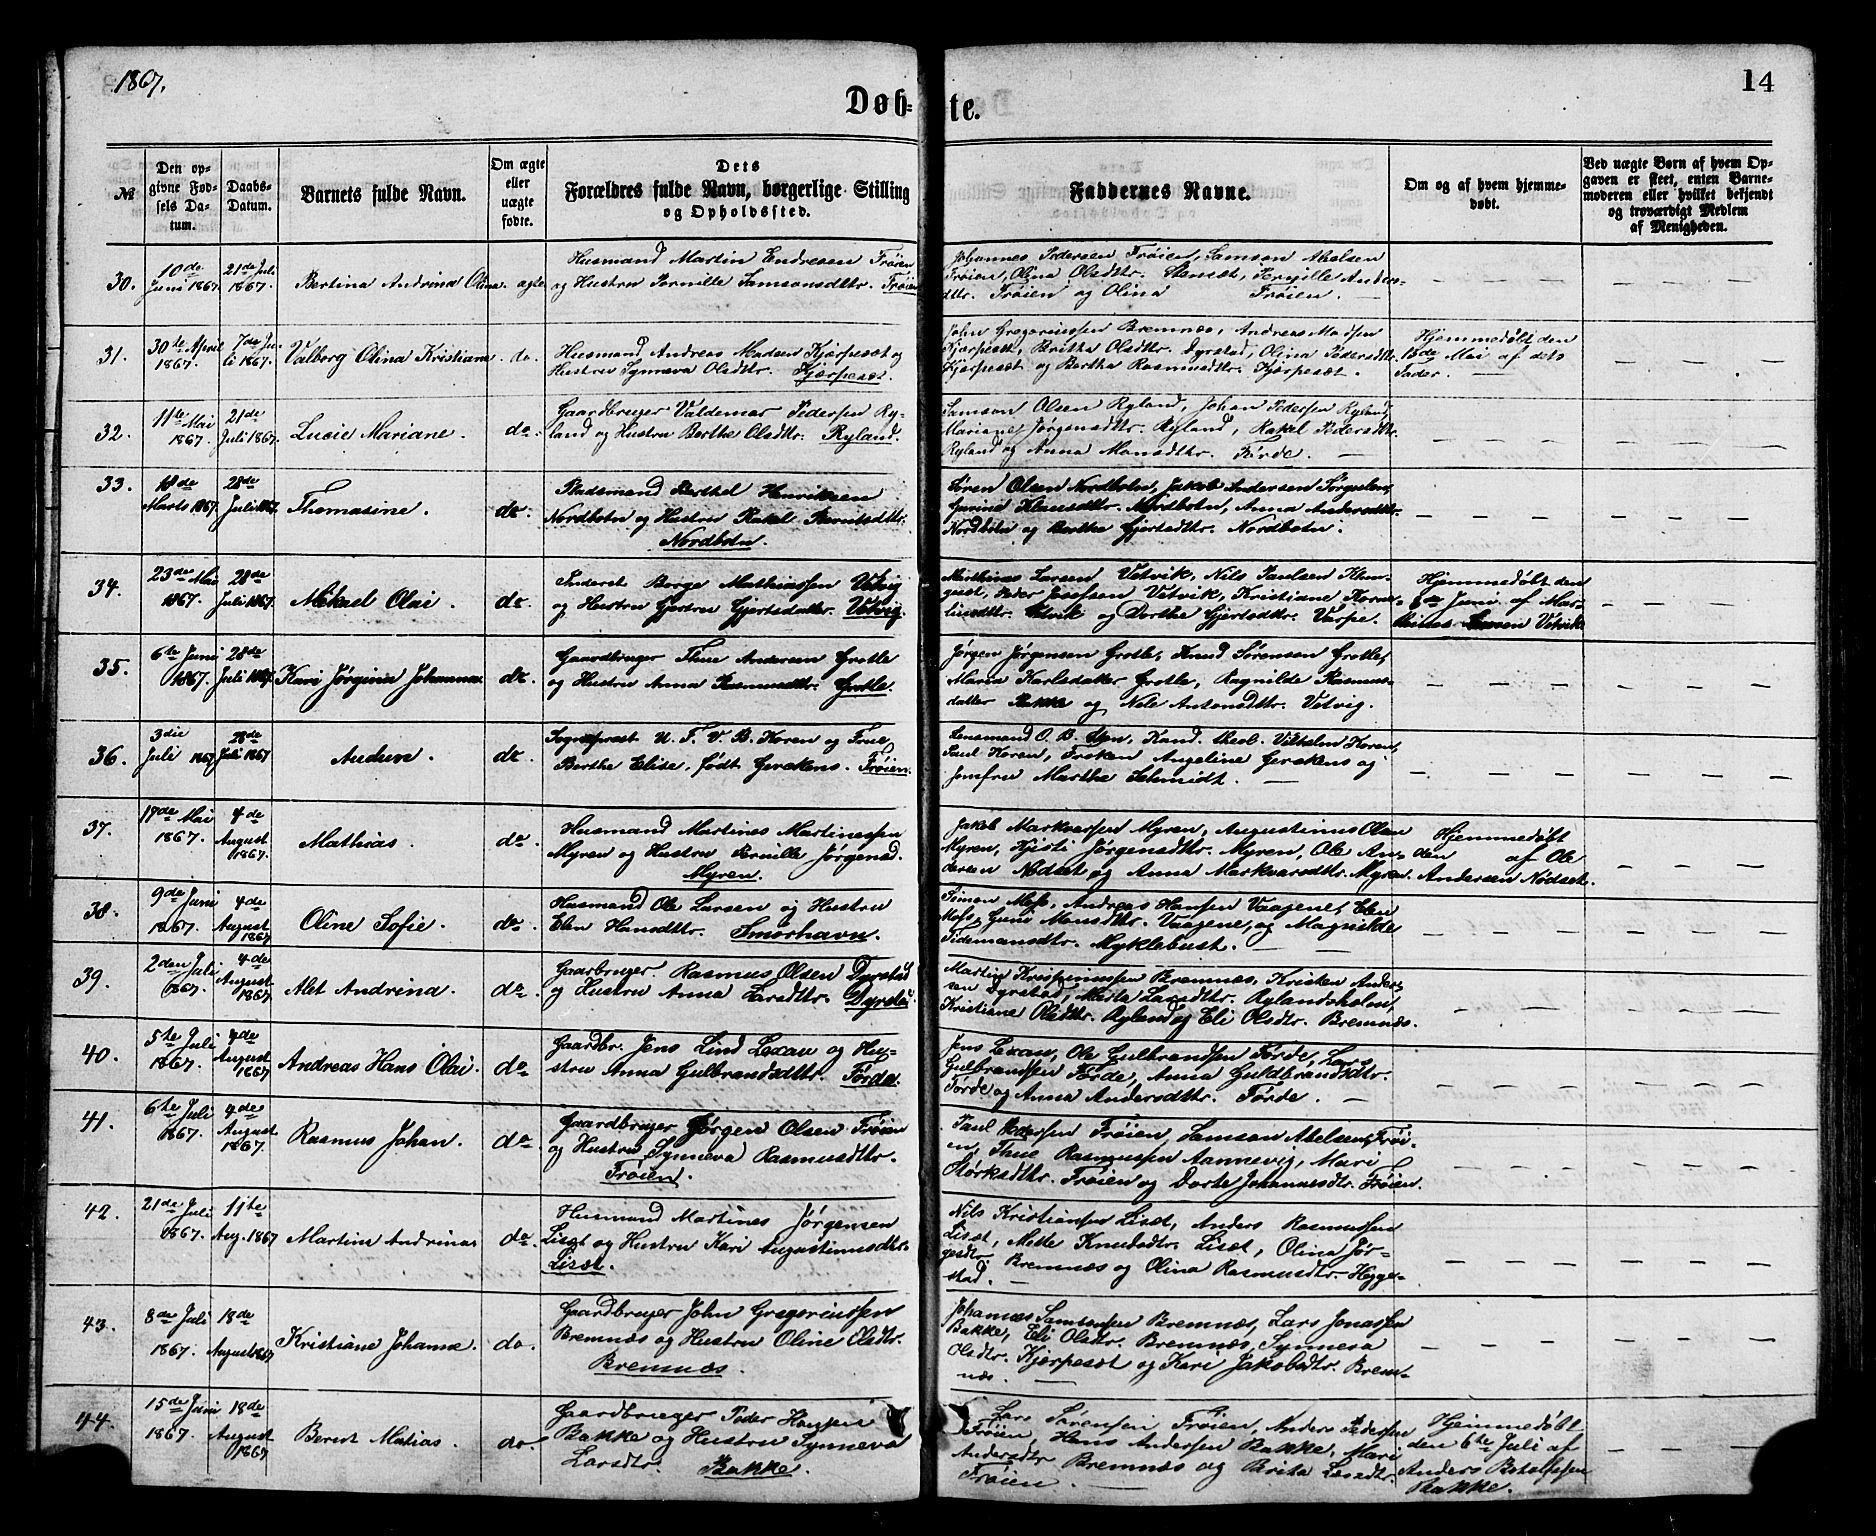 1867.
14
Døb-
te.
№
Den op-
givne Fød-
sels Da-
tum.
Daabs-
Datum.
Barnets fulde Navn.
Om ægte
eller
uægte
fødte.
Dets
Forældres fulde Navn, borgerlige Stilling
og Opholdssted.
Faddernes Navne.
Om og af hvem hjemme-
døbt.
Ved uægte Børn af hvem Op-
gaven er skeet, enten Barne-
moderen eller hvilket bekjendt
og troværdigt Medlem
af Menigheden.
30.
10de
Juni 1867.
21de Juli
1867.
Bertina Andrina Olina.
ægte
Husmand Martin Endresen Frøien
og Hustru Pernille Samsonsdttr. Frøien
Johannes Pedersen Frøien, Samson Abelsen
Frøien, Olina Olsdttr. Pernille Anders-
dttr. Frøien og Olina Frøien. —
31.
30te April
1867.
7de Ju-
li 1867.
Valborg Olina Kristiane
do.
Husmand Andreas Madsen Kjærpesæt og
Hustru Synneva Olsdttr. Kjærpesæt.
John Gregoriussen Bremnæs, Andreas Madsen
Kjærpesæt, Britha Olsdttr. Dyrstad, Olina Pedersdttr.
Kjærpesæt og Bertha Rasmusdttr. Kjærpesæt.
Hjemmedøbt den
13de Mai af dets
Fader. —
32.
11te Mai
1867.
21de
Juli 1867.
Lucie Mariane.
do.
Gaardbruger Valdemar Pedersen Ry-
land og Hustru Berthe Olsdttr. Ryland.
Samson Olsen Ryland, Johan Pedersen Ryland,
Mariane Jørgensdttr. Ryland, Rakel Pedersdttr.
Ryland og Anna Monsdttr. Førde. —
33.
18de
Marts 1867.
28de
Juli 1867.
Thomasine.
do.
Pladsmand Berthel Henriksen
Nordbotn og Hustru Rakel Berntsdttr.
Nordbotn.
Søren Olsen Nordbotn, Jakob Andersen
Klausdttr. Nordbotn, Anna Andersdttr.
Nordbotn og Berthe Gjertsdttr. Nordbotn.
34.
23de Mai
1867.
28de
Juli 1867.
Mikael Olai.
do.
Inderst Børge Mathiassen Vetvig
og Hustru Gjertru Gjertsdatter Vetvig
Marthinus Larsen Vetvik, Nils Paulsen
Peder Josefsen Vetvik, Kristiane
Vetvik og Dorthe Gjertsdttr. Varpe.
Hjemmedøbt den
8de Juni af Mar-
thinus Larsen Vetvik
35.
6te Juni
1867.
28de
Juli 1867.
Kari Jørgina Johanna.
do.
Gaardbruger Thue Andersen Grotle
og Hustru Anna Rasmusdttr. Grotle.
Jørgen Jørgensen Grotle, Knud Sørensen Grotle,
Maria Karlsdatter Grotle, Ragnilde Rasmus-
datter Bakke og Nele Antonsdttr. Vetvig.
36.
3die
Juli 1867
28de
Juli 1867
Audun.
do.
Sogneprest U. F. V. B. Koren og Frue
Berthe Elise, født Gerckens. Frøien.
Lensmand O. B. Kand. theol. Vilhelm Koren,
Paul Koren, Frøken Angeline Gerckens og
Jomfru Marthe Schmidt. —
37.
17de Mai
1867.
4de
August
1867.
Mathias.
do.
Husmand Martines Martinessen
Myren og Hustru Pernille Jørgensd.
Myren.
Jakob Markvarssen Myren, Augustinus Olsen
Myren, Kjisti Jørgensdttr. Myren, Ole An-
dersen Nødset og Anna Markvarsdttr. Myren.
Hjemmedøbt
den af Ole
Andersen Nødset.
38.
9de Juni
1867.
4de
August
1867
Oline Sofie.
do.
Husmand Ole Larsen og Hustru
Elen Hansdttr. Smørhavn.
Simon Mofs, Andreas Hansen Vaagene, Elen
Mofs, Guni Monsdttr. Vaagene, og Magnilde
Tidemansdttr. Myklebust. —
39.
2den Juli
1867.
4de
August
1867
Alet Andrina.
do.
Gaarbruger. Rasmus Olsen Dyrstad
og Hustru Anna Larsdttr. Dyrstad.
Martin Krispinussen Bremnæs, Kristen Ander-
sen Dyrstad, Marta Larsdttr. Rylandsholm,
Kristiane Olsdttr. Ryland og Eli Olsdttr. Bremnæs.
40.
5te Juli
1867.
4de
August
1867
Andreas Hans Olai.
do.
Gaardbr. Jens Lind Lexau og Hu-
stru Anna Gulbrandsdttr. Førde.
Jens Lexau, Ole Gulbrandsen Førde, Lars
Gulbrandsen Førde, Anna Guldbrandsdttr.
Førde og Anna Andersdttr. Førde. —
41.
6te Juli
1867.
4de
August
1867.
Rasmus Johan.
do.
Gaardbruger Jørgen Olsen Frøien
og Hustru Synneva Rasmusdttr.
Frøien.
Paul Pedersen Frøien, Samson Abelsen Frøi-
en, Thue Rasmussen Aannevig, Mari
Størksdttr. Frøien og Dorte Johannesdtr. Frøien.
42.
21de Juli
1867.
11te
Aug. 1867
Martin Andrinas
do.
Husmand Martines Jørgensen
Lisæt og Hustru Kari Augustinusdttr.
Lisæt.
Nils Kristiansen Lisæt, Anders Rasmussen
Lisæt, Mette Knudsdtr. Lisæt, Olina Jør-
gesdtr. Bremnæs og Olina Rasmusdtr. Hegge-
stad. —
43.
8de Juli
1867.
18de
August 1867
Kristiane Johanne.
do.
Gaardbruger John Gregoriussen
Bremnæs og Hustru Oline Olsdtr.
Bremnæs.
Johannes Samsonsen Bremnæs, Lars Jonassen
Bakke, Eli Olsdtr. Bremnæs, Synneva
Olsdtr. Kjærpesæt og Kari Jakobsdtr. Brem-
næs. —
44.
15de Juni
1867.
18de
August
1867
Berent Matias.
do.
Gaardbruger Peder Hansen
Bakke og Hustru Synneva
Larsdtr. Bakke.
Lars Sørensen Frøien, Anders Pedersen
Frøien, Hans Andersen Bakke, Mari
Andersdtr Bremnæs og Brita Larsdtr.
Frøien. —
Hjemmedøbt
den 6te Juli af
Anders Botolfsen
Bakke.